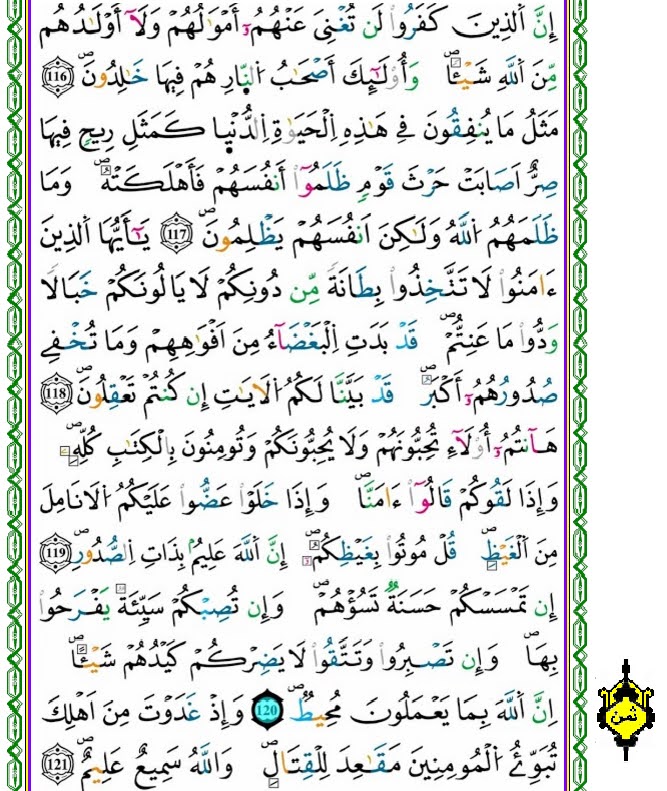 إِنَّ ٱلذِينَ كَفَرُواْ لَن تُغْنِىَ عَنْهُمُۥٓ أَمْوَٰلُهُمْ وَلَآ أَوْلَٰدُهُم
مِّنَ ٱللَّهِ شَيْـًٔاۖ وَأُوْلَٰٓئِكَ أَصْحَٰبُ اُ۬لنّ۪ارِ هُمْ فِيهَا خَٰلِدُونَۖ 116
مَثَلُ مَا يُنفِقُونَ فِے هَٰذِهِ اِ۬لْحَيَوٰةِ اِ۬لدُّنْي۪ا كَمَثَلِ رِيحٖ فِيهَا
صِرٌّ اَصَابَتْ حَرْثَ قَوْمٖ ظَلَمُوٓاْ أَنفُسَهُمْ فَأَهْلَكَتْهُۖ وَمَا
ظَلَمَهُمُ اُ۬للَّهُ وَلَٰكِنَ اَنفُسَهُمْ يَظْلِمُونَۖ 117 يَٰٓأَيُّهَا اَ۬لذِينَ
ءَامَنُواْ لَا تَتَّخِذُواْ بِطَانَةٗ مِّن دُونِكُمْ لَا يَالُونَكُمْ خَبَالٗا
وَدُّواْ مَا عَنِتُّمْۖ قَدْ بَدَتِ اِ۬لْبَغْضَآءُ مِنَ اَفْوَٰهِهِمْ وَمَا تُخْفِے
صُدُورُهُمُۥٓ أَكْبَرُۖ قَدْ بَيَّنَّا لَكُمُ اُ۬لَايَٰتِ إِن كُنتُمْ تَعْقِلُونَۖ 118
هَآنتُمُۥٓ أُوْلَآءِ تُحِبُّونَهُمْ وَلَا يُحِبُّونَكُمْ وَتُومِنُونَ بِالْكِتَٰبِ كُلِّهِۦۖ
وَإِذَا لَقُوكُمْ قَالُوٓاْ ءَامَنَّاۖ وَإِذَا خَلَوْاْ عَضُّواْ عَلَيْكُمُ اُ۬لَانَامِلَ
مِنَ اَ۬لْغَيْظِۖ قُلْ مُوتُواْ بِغَيْظِكُمُۥٓۖ إِنَّ اَ۬للَّهَ عَلِيمُۢ بِذَاتِ اِ۬لصُّدُورِۖ 119
إِن تَمْسَسْكُمْ حَسَنَةٞ تَسُؤْهُمْۖ وَإِن تُصِبْكُمْ سَيِّئَةٞ يَفْرَحُواْ
بِهَاۖ وَإِن تَصْبِرُواْ وَتَتَّقُواْ لَا يَضِرْكُمْ كَيْدُهُمْ شَيْـًٔاۖ
اِنَّ اَ۬للَّهَ بِمَا يَعْمَلُونَ مُحِيطٞۖ 120 وَإِذْ غَدَوْتَ مِنَ اَهْلِكَ
تُبَوِّئُ اُ۬لْمُومِنِينَ مَقَٰعِدَ لِلْقِتَالِۖ وَاللَّهُ سَمِيعٌ عَلِيمٌۖ 121
ثمن